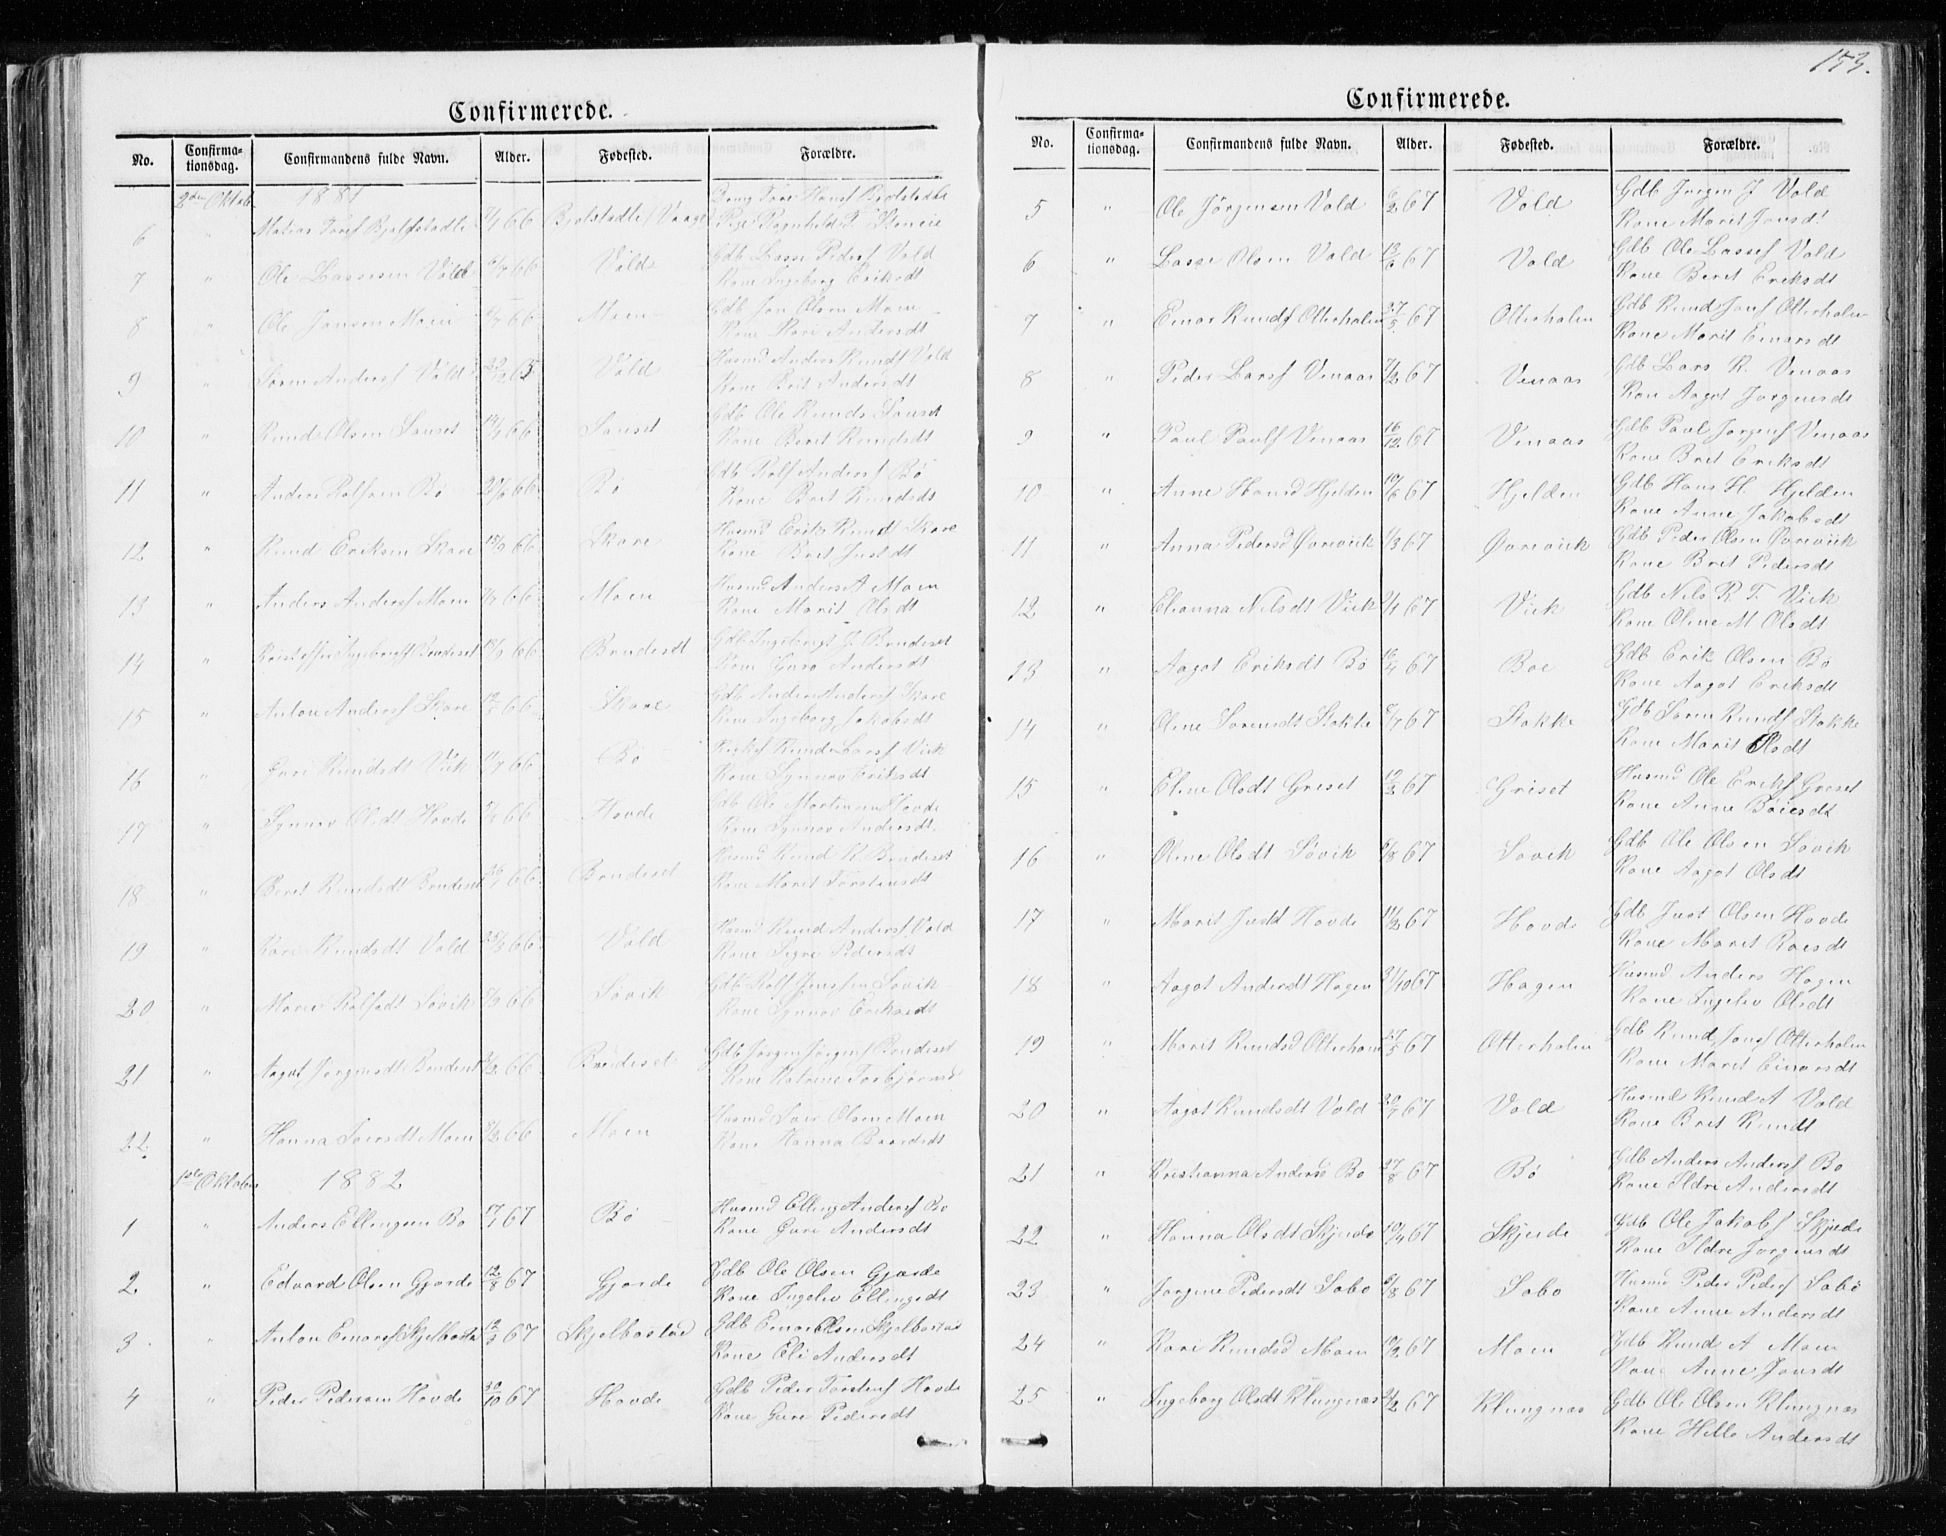 153.
Confirmerede.
No. Confirmationsdag. Confirmandens fulde Navn. Alder. Fødested. Forældre.
2den Oktob. 1881
6 " Bjolstadli
7 " Ole Lassesen Vold 66 Vold Gdb Lasse Peders Vold
Kone Ingeborg Eriksdt
8 " Ole Jonsen Moen 66 Moen Gdb Jon Olsen Moen
Kone Kari Andersdt
9 " Søren Andersf Vold 65 Vold Husmd Anders Knudf Vold
Kone Brit Andersdt
10 " Knud Olsen Sauset 14/4 66 Sauset Gdb Ole Knuds Sauset
Kone Beret Knudsdt
11 " Anders Rolfsen Bø 66 Bø Gdb Rolf Andersf Bø
Kone Brit Knudsdt
12 " Knud Eriksen Skare 66 Skare Husmd Erik Knudf Skare
Kone Brit
13 " Anders Andersf Moen 66 Moen Husmd Anders A Moen
Kone Marit Olsdt
14 " Kristoffer Ingebrigtf Brudeset 66 Brudeset Gdb Ingebrigt J. Brudeset
Kone Guro Andersdt
15 " Anton Andersf Skare 66 Skare Gdb Anders Andersf Skare
Kone Ingeborg Jakobsdt
16 " Guri Knudsdt Vik 66 Bø Knud Larsf Vik
Kone Synnøv Eriksdt
17 " Synnøv Olsdt Hovde 66 Hovde Gdb Ole Martinus Hovde
Kone Synnøv Andersdt.
18 " Beret Knudsdt Brudeset 66 Brudeset Husmd Knud K. Brudeset
Kone Marit Torstensdt
19 " Kari Knudsdt Vold 66 Vold Husmd Knud Andersf Vold
Kone Sigri Pedersdt
20 " Marie Rolfsdt Søvik 66 Søvik Gdb Rolf Jensen Søvik
Kone Synnøv Eriksdt
21 " Aagot Jørgensdt Brudeset 66 Brudeset Gdb Jørgen Jørgenf Brudeset
Kone Katrine Torbjørnsd
22. " Hanna Siversdt Moen 66 Moen Husmd Siver Olsen Moen
Kone Hanna Baardsdt
1ste Oktober 1882
1 " Anders Ellingsen Bø 67 Bø Husmd Elling Andersf Bø
Kone Guri Andersdt
2 " Edvard Olsen Gjørde 12/8 67 Gjørde Gdb Ole Olsen Gjørde
Kone Ingelev Ellingsdt
3 " Anton Einarsf Skjelbostad 67 Skjelbostad Gdb Einar Olsen Skjelbostad
Kone Eli Andersdt
4 " Peder Pedersen Hovde 30/10 67 Hovde Gdb Peder Torstenf Hovde
Kone Guri Pedersdt
Confirmerede.
No. Confirmationsdag. Confirmandens fulde Navn. Alder. Fødested. Forældre.
5 " Ole Jørgensen Vold 67 Vold Gdb Jørgen J. Vold
Kone Marit Jonsdt
6 " Lasse Olsen Vold 13/6 67 Vold Gdb Ole Lassef Vold
Kone Beret Eriksdt
7 " Einar Knudf Otterholm 27/5 67 Otterholm Gdb Knud Jonf Otterholm
Kone Marit Einarsdt
8 " Peder Larsf Venaas 7/2 67 Venaas Gdb Lars R. Venaas
Kon Aagot Jørgensdt
9 " Paul Paulf Venaas 16/12 67 Venaas Gdb Paul Jørgenf Venaas
Kone Brit Eriksdt
10 " Anne Hansd Hjelden 19/6 67 Hjelden Gdb Hans H. Hjelden
Kone Anne Jakobsdt
11 " Anna Pedersd Øvrevik 67 Øvrevik Gdb Peder Olsen Øvrevik
Kone Brit Pedersdt
12 " Elianna Nilsdt Vik 67 Vik Gdb Nils R. T. Vik
Kone Oline M Olsdt
13 " Aagot Eriksdt Bø 16/4 67 Boe Gdb Erik Olsen Bø
Kone Aagot Eriksdt
14 " Oline Sørensdt Stokke 67 Stokke Gdb Søren Knudf Stokke
Kone Marit Olsdt
15 " Eline Olsdt Griset 67 Griset Husmd Ole Erikf Griset
Kone Anne Bøiesdt
16 " Oline Olsdt Søvik 6/8 67 Søvik Gdb Ole Olsen Søvik
Kone Aagot Olsdt
17 " Marit Justdt Hovde 11/2 67 Hovde Gdb Just Olsen Hovde
Kone Marit Roesdt
18 " Aagot Andersdt Hagen 31/10 67 Hagen Husmd Anders Hagen
Kone Ingelev Olsdt
19 " Marit Knudsd Otterholm 27/5 67 Otterholm Gdb Knud Jonsf Otterholm
Kone Marit Einarsdt
20 " Aagot Knudsdt Vold 67 Vold Husmd Knud A Vold
Kone Brit Knudt
21 " Kristianna Andersd Bo 27/8 67 Bø Gdb Anders Andersf Bo
Kone Ildre Andersdt
22 " Hanna Olsdt Skjerde 10/4 67 Skjerde Gdb Ole Jakobf Skjerde
Kone Ildre Jørgensdt
23 " Jørgine Pedersdt Sobø 6/8 67 Sobø Husmd Peder Pedersf Sabø
Kone Anne Andersdt
24 " Kari Knudsd Moen 67 Moen Gdb Knud A Moen
Kone Anne Jonsdt
25 " Ingeborg Olsdt Klungnæs 67 Klungnæs Gdb Ole Olsen Klungnæs
Kone Andersdt